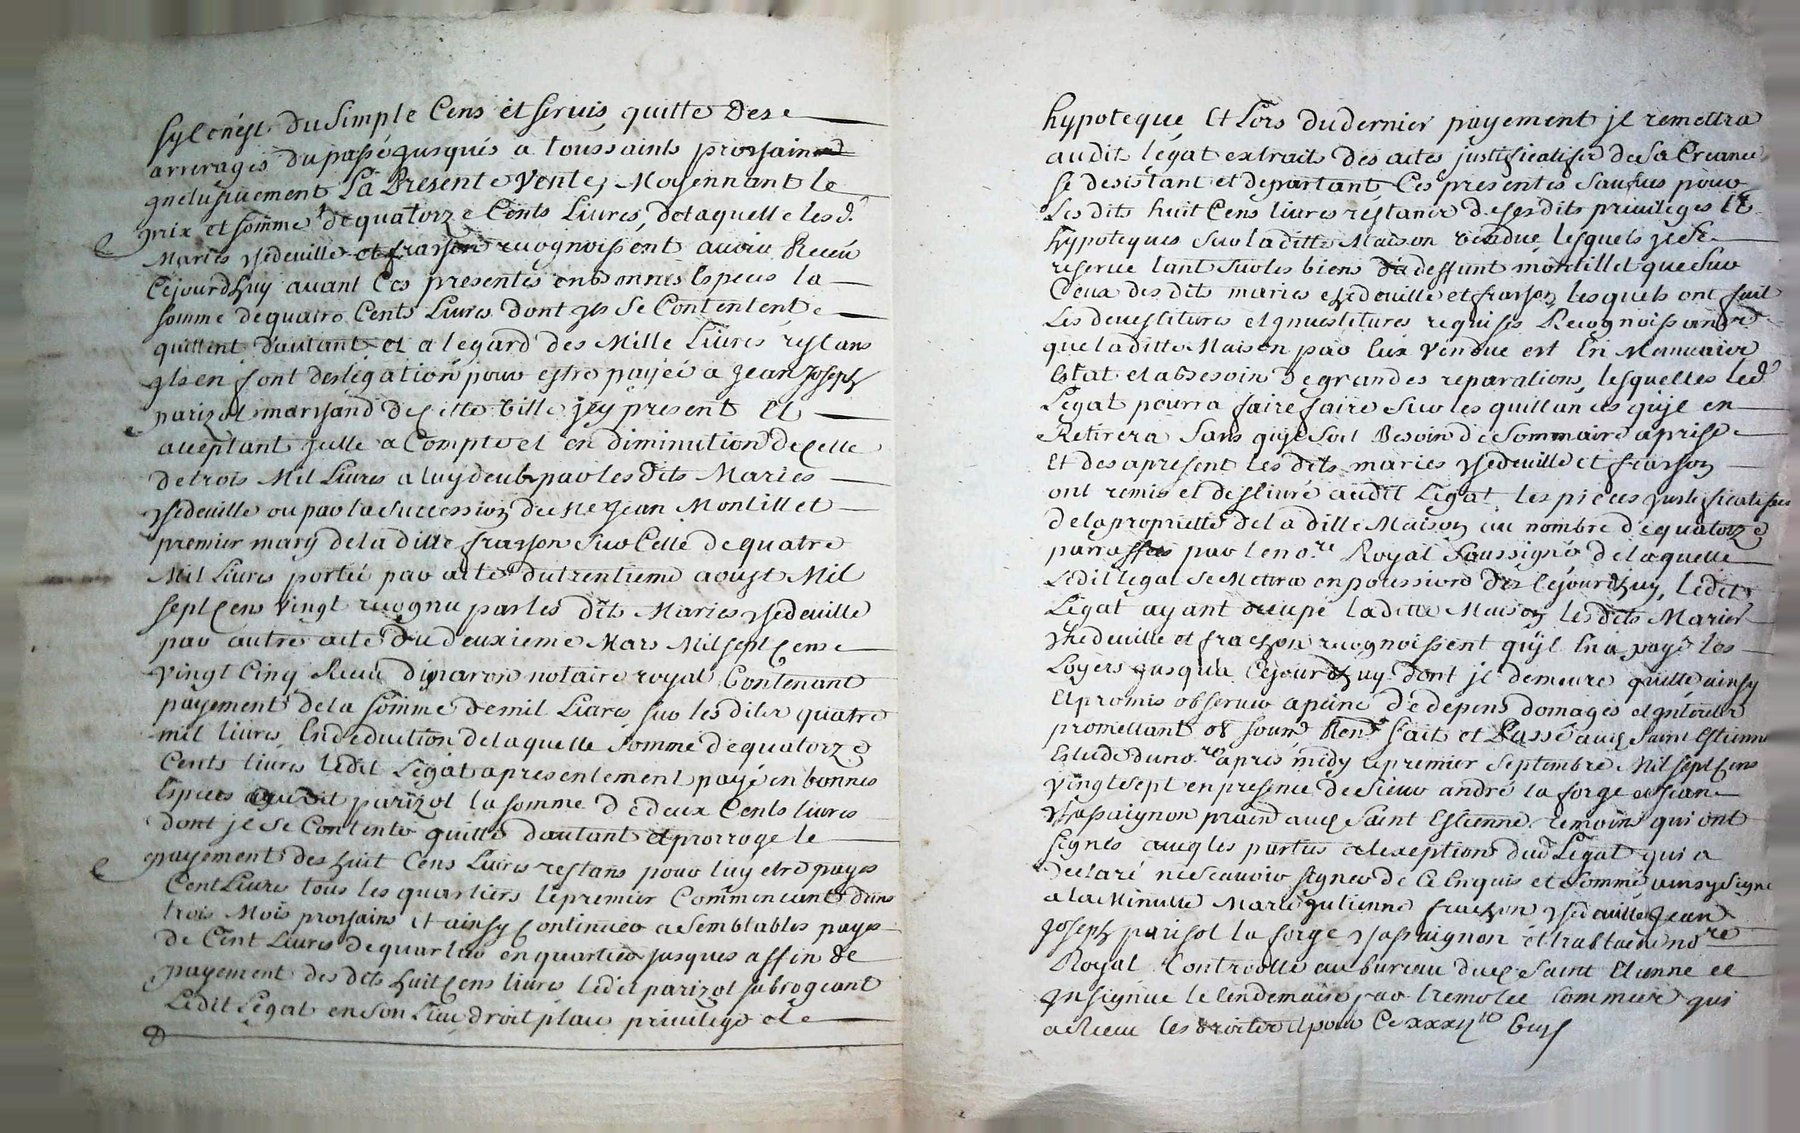 sylenest du simple Cens et servis quitte des
arrerages du passé jusqués a toussaints prochain
jnclusivement La Presente Vente, Moyennant le
prix et somme de quatorze Cents Livres, de laquelle lesd.
Mariés ysedeuille et frasson recognoissent avoir Receu
Cejourdhuy avant Ces presentes en bonnes Especes la
somme de quatre Cents Livres dont jls se Contentent
quittent d'autant et a legard des Mille Livres restans
jls en font deslegation pour estre payée a Jean Joseph
parizot marchand de Cette Ville jcy present Et
acceptant jcelle a Compte et en diminution de Celle
de trois Mil Livres a luy deub par les dits Mariés
ysedeuille ou par la succession de Sr Jean Montillet
premier mary de la ditte frasson sur Celle de quatre
Mil Livres portée par acte du trentieme aoust Mil
sept Cens vingt recognu par les dits Mariés ysedeuille
par autre acte du deuxieme Mars Mil sept Cens
vingt Cinq Receu notaire royal Contenant
payement de la somme de mil Livres sur les dites quatre
mil livres, En deduction de laquelle somme de quatorze
Cents livres ledit Légat a presentement payé en bonnes
Especes audit parizot la somme de deux Cents livres
dont jl se Contente quitte dautant et prorroge le
payement des huit Cens Livres restans pour luy etre payés
Cent Livres tous les quartiers le premier Commencant dans
trois Mois prochains et ainsy Continuer a semblables payes
de Cent Livres de quartier en quartier jusques a fin de
payement des dits huit Cens livres ledit parizot subrogeant
Ledit Légat en son Lieu droit place privilege et
hypoteque Et Lors du dernier payement jl remettra
audit légat extrait des actes justificatifs de sa Creance
se desistant et departant Ces presentes saufus pour
Les dits huit Cens livres restans de ses dits privileges Et
hypoteques sur la ditte Maison vendue, lesquels jl se
reserve tant sur les biens dudeffunt montillet que sur
Ceux des dits mariés ysedeuille et frasson lesquels ont fait
Les devestitures et jnvestitures requises Recognoissant
que la ditte Maison par Eux Vendue est En Mauvais
Estat et a besoin de grandes reparations, lesquelles led.
Légat pourra faire faire sur les quittances qu'jl en
Retirera sans qu'jl soit Besoin de sommaire aprise
Et des apresent les dits mariés ysedeuille et frasson
ont remis et deslivré audit Légat les pieces justificatifves
de la proprieté de la ditte Maison au nombre de quatorze
parraffées par le nore Royal soussigné de laquelle
Ledit légat se Mettra en possession des Cejourdhuy, Ledit
Légat ayant occupé la ditte Maison les dits Mariés
yhedeuille et frachon recognoissent qu'jl En a payé les
Loyers jusqu'a Cejourdhuy dont jl demeure quitte ainsy
Et promis observer a peine de depens domages et jnterets
promettant obl soum Ren fait et Passé audt Saint Estienne
Estude du nore apres midy le premier septembre Mil sept Cens
vingt sept en presence de sieur andré la forge et Jean
Chassaignon praind audt Saint Estienne temoins qui ont
signés avec les parties a l'exeption dud Légat qui a
declaré ne scavoir signer de Ce Enquis et sommé ainsy signé
a la Minutte Marie julienne frachon yhedeuille Jean
Joseph parisot la forge Chassaignon et trablaine nore
Royal Controllé au bureau dudt Saint Etienne et
Jnsignué le lendemain par tremolet Commis qui
a Receu les droits Et pour Ce xxxij lt